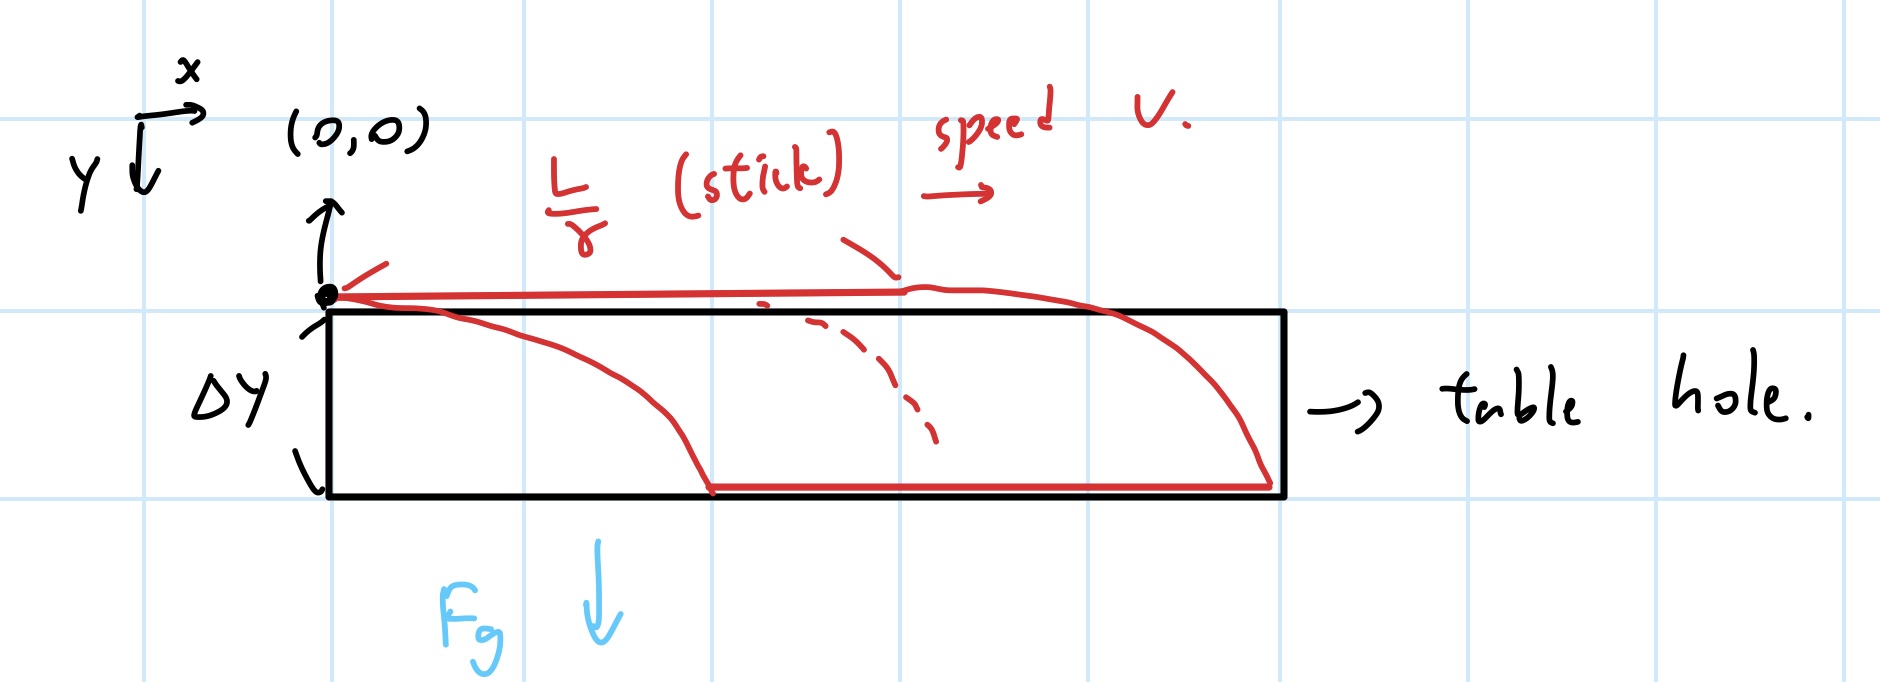 x
y
(0,0)
L/γ (stick)
speed v.
ΔY
→ table hole.
Fg ↓